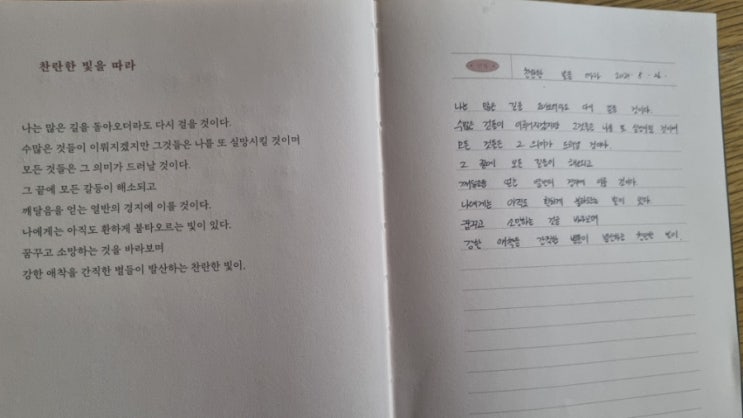 찬란한 빛을 따라
나는 많은 길을 돌아오더라도 다시 걸을 것이다.
수많은 것들이 이뤄지겠지만 그것들은 나를 또 실망시킬 것이며
모든 것들은 그 의미가 드러날 것이다.
그 끝에 모든 갈등이 해소되고
깨달음을 얻는 열반의 경지에 이를 것이다.
나에게는 아직도 환하게 불타오르는 빛이 있다.
꿈꾸고 소망하는 것을 바라보며
강한 애착을 간직한 별들이 발산하는 찬란한 빛이.
찬란한 빛을 따라
나는 많은 길을 돌아오더라도 다시 걸을 것이다.
수많은 것들이 이뤄지겠지만 그것들은 나를 또 실망시킬 것이며
모든 것들은 그 의미가 드러날 것이다.
그 끝에 모든 갈등이 해소되고
깨달음을 얻는 열반의 경지에 이를 것이다.
나에게는 아직도 환하게 불타오르는 빛이 있다.
꿈꾸고 소망하는 것을 바라보며
강한 애착을 간직한 별들이 발산하는 찬란한 빛이.